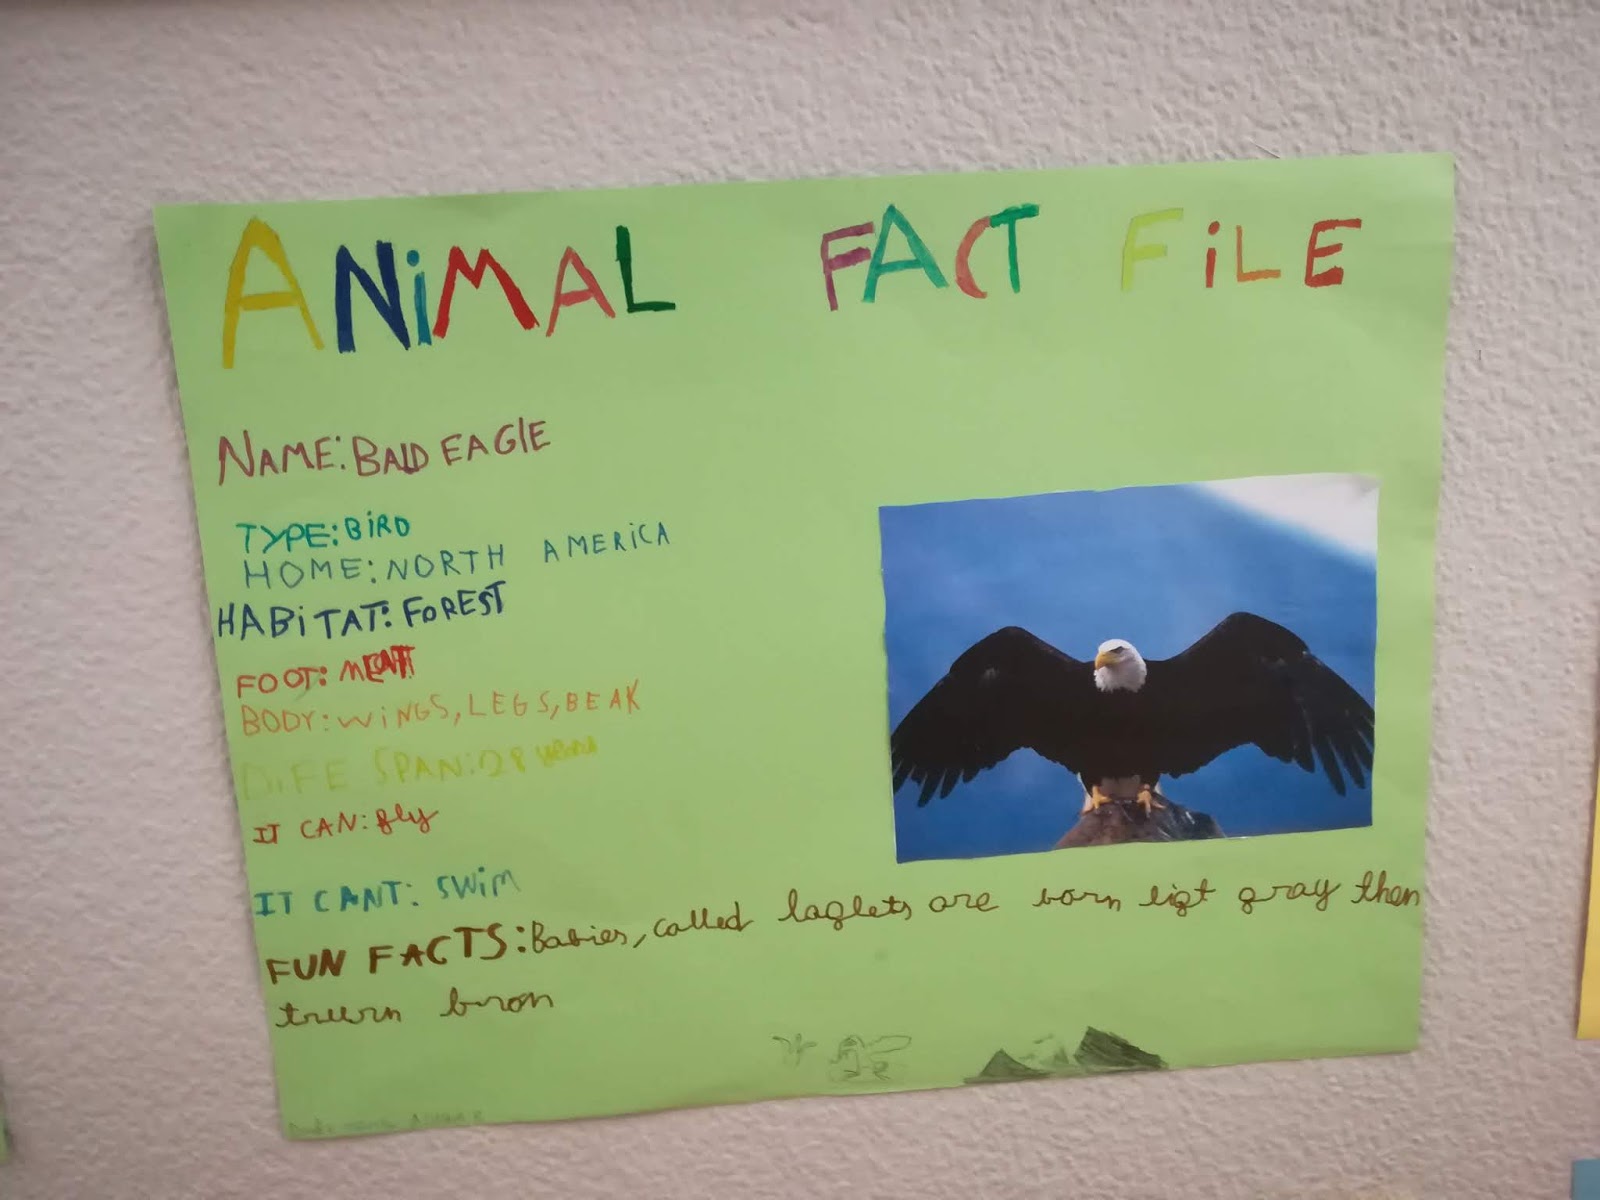 ANiMAL FACT FiLE
NAME: BALD EAGlE
TYPE: BiRD
HOME: NORTH AMERiCA
HABiTAT: FOREST
FOOT: MEAT
BODY: WiNGS, LEGS, BEAK
LiFE SPAN: 28 YEARS
IT CAN: fly
IT CANT: SWiM
FUN FACTS: Babies, called laglets are born ligt gray then
truurn bron